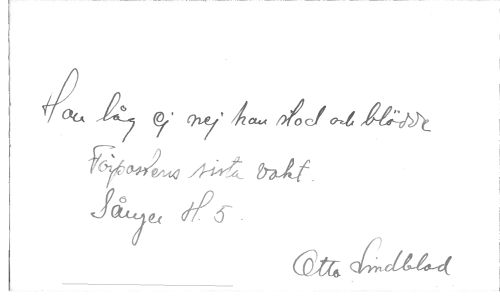 Han låg ej nej han stod och blödde
Förpostens sista vakt.
Sånger H. 5.
Otto Lindblad